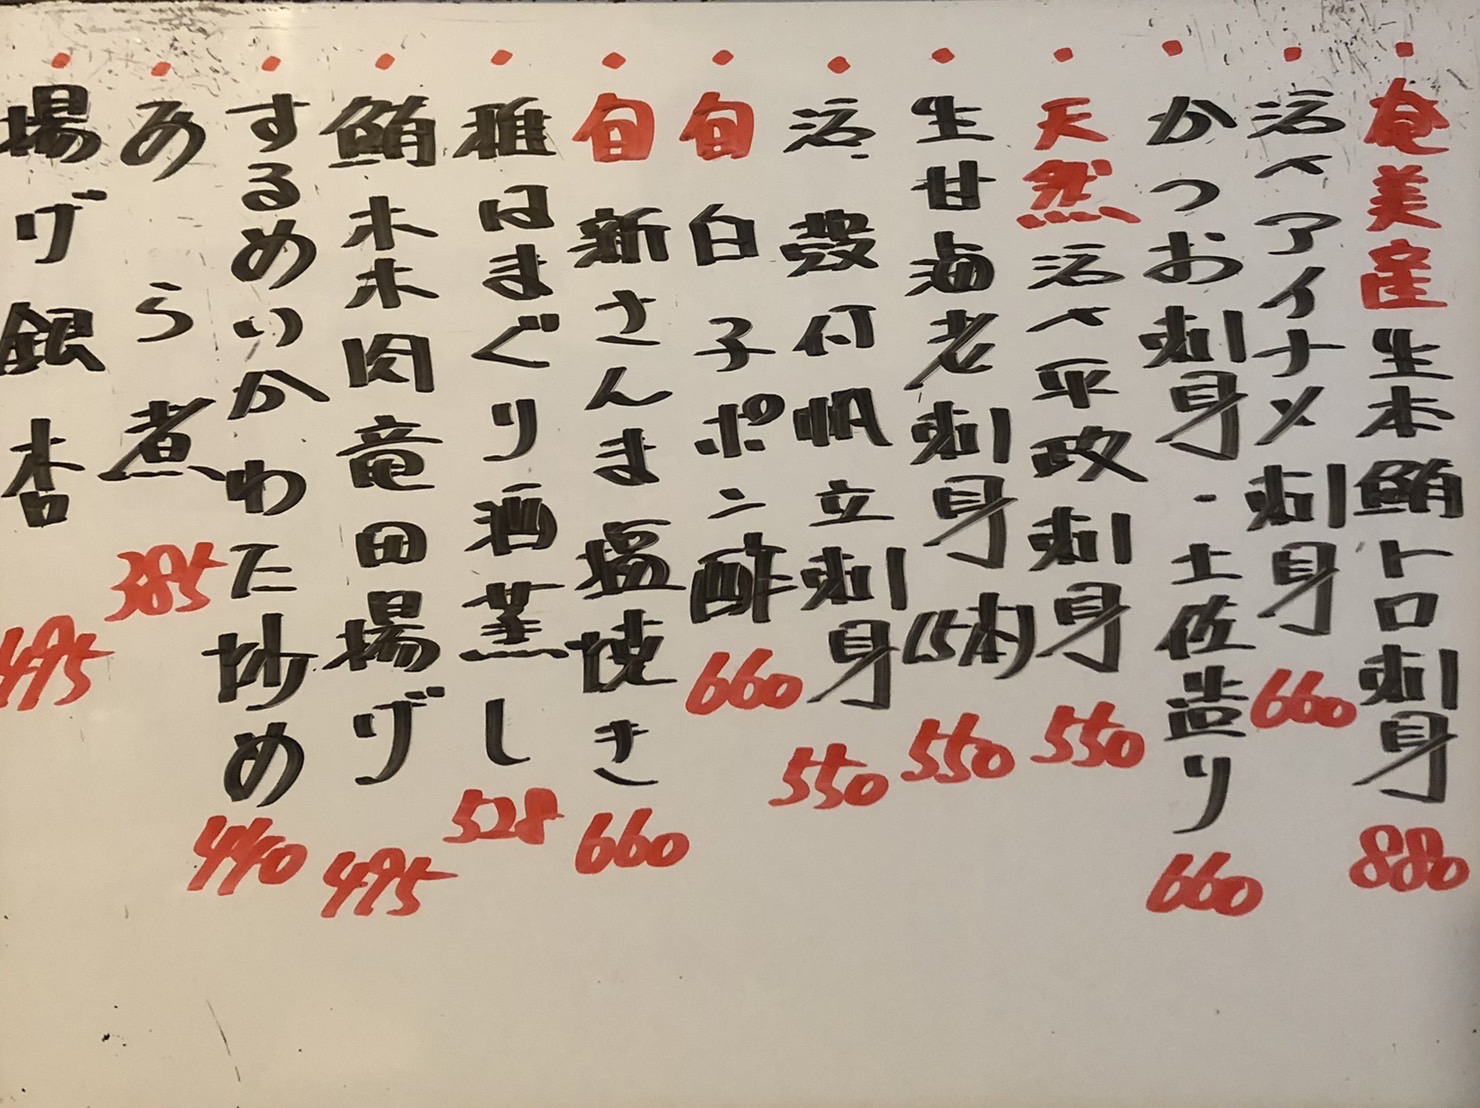 ・奄美産生本鮪トロ刺身 880
・活〆アイナメ刺身 660
・かつお刺身・土佐造り 660
・天然活〆平政刺身 550
・生甘海老刺身(5本) 550
・活殻付帆立刺身 550
・旬白子ポン酢 660
・旬新さんま塩焼き 660
・雅はまぐり酒蒸し 528
・鮪ホホ肉竜田揚げ 495
・するめいかわた炒め 440
・あら煮 385
・揚げ銀杏 495